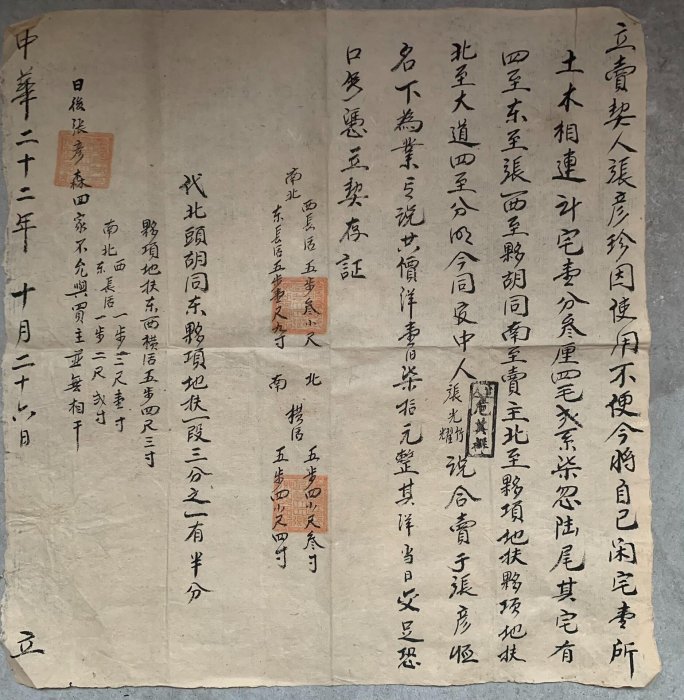 立賣契人張彥珍因使用不便今將自己闲宅壹所
土木相連計宅壹分叁厘四毛弍系柒忽陆尾其宅有
四至东至張西至夥胡同南至賣主北至夥項地扶夥項地扶
北至大道四至分明今同衆中人張光竹耀說合賣于張彥恒
名下為業言說共價洋壹百柒拾元整其洋当日交足恐
口無憑立契存証
南北 西長活五步叁小尺
东長活五步壹尺九寸
北 南 横活 五步四小尺叁寸
五步四小尺四寸
代北頭胡同东夥項地扶一段三分之一有半分
夥項地扶东西横活五步四尺三寸
南北 西 长活一步三尺壹寸
东 一步二尺弍寸
日後張彥森四家不允與買主並無相干
中華二十二年十月二十六日 立